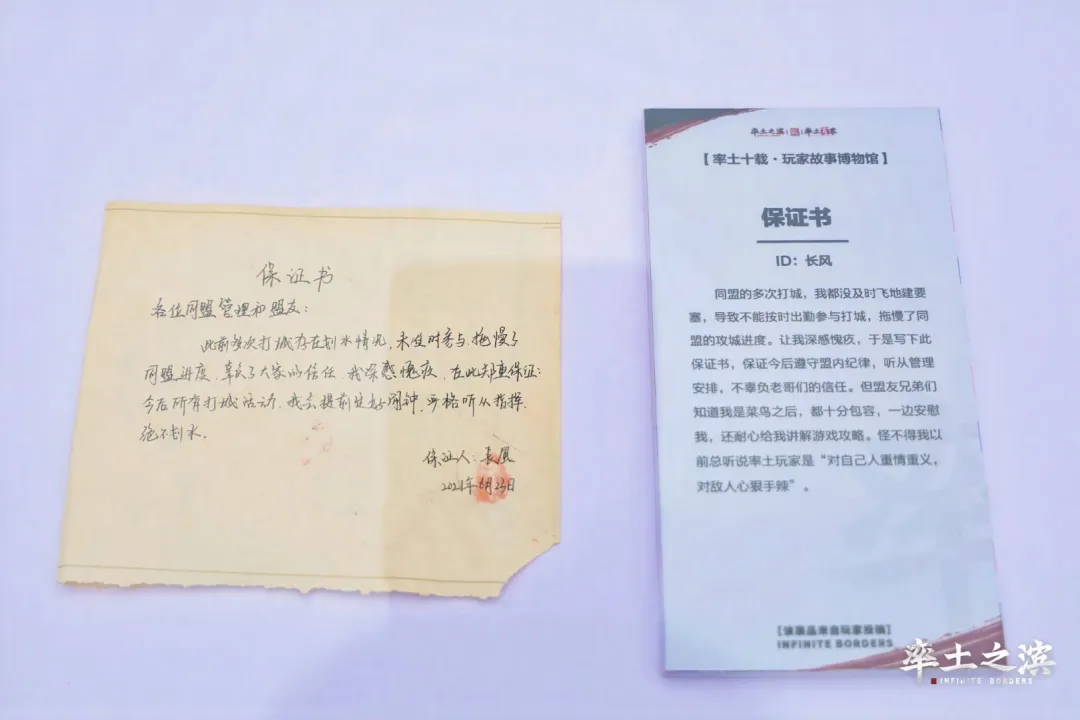 保证书
各位同盟管理和盟友：
此前多次打城存在划水情况，未及时参与，拖慢了
同盟进度，辜负了大家的信任，我深感愧疚，在此郑重保证：
今后所有打城活动，我会提前定好闹钟，严格听从指挥，
绝不划水。
保证人：长風
2021年6月23日
率土之滨 率土玩家
【率土十载·玩家故事博物馆】
保证书
ID：长风
同盟的多次打城，我都没及时飞地建要
塞，导致不能按时出勤参与打城，拖慢了同
盟的攻城进度。让我深感愧疚，于是写下此
保证书，保证今后遵守盟内纪律，听从管理
安排，不辜负老哥们的信任。但盟友兄弟们
知道我是菜鸟之后，都十分包容，一边安慰
我，还耐心给我讲解游戏攻略。怪不得我以
前总听说率土玩家是“对自己人重情重义，
对敌人心狠手辣”。
【该展品来自玩家投稿】
INFINITE BORDERS
率土之滨
INFINITE BORDERS